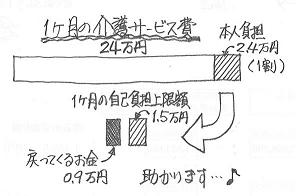 1ケ月の介護サービス費
24万円
本人負担
2.4万円
(1割)
1ケ月の自己負担上限額
1.5万円
戻ってくるお金
0.9万円
助かります…♪